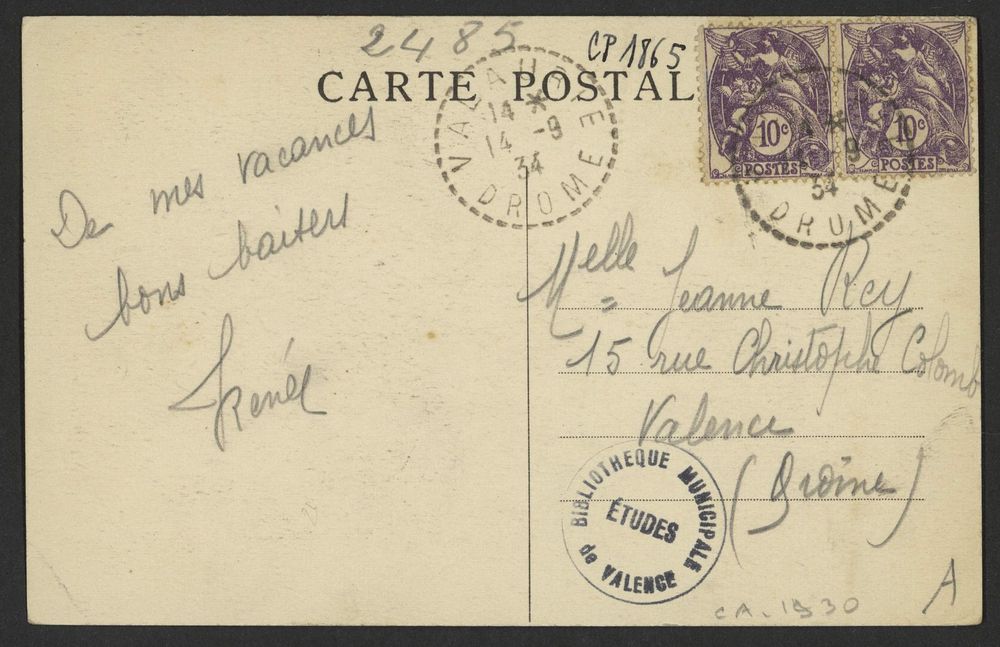 2485
CP 1865
CARTE POSTAL
14 *
14 -9
34
DROME
10c
POSTES
10c
POSTES
*
9
34
DROME
De mes vacances
bons baisers
Renée
Melle Jeanne Rey
15 rue Christophe Colomb
Valence
(Drôme)
BIBLIOTHEQUE MUNICIPALE
ÉTUDES
de VALENCE
CA. 1930
A